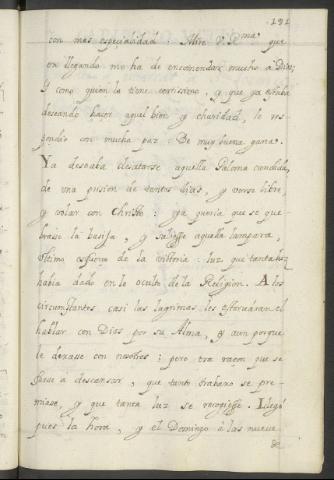 191
con mas especialidad: Mire V. Rma que
en llegando me ha de encomendar mucho a Dios;
Y como quien la tiene certissima, y que ya estaba
deseando hacer aquel bien y charidad, le res-
pondio con mucha paz: De muy buena gana.
Ya deseaba desatarse aquella Paloma candida,
de una prision de tantos dias, y verse libre,
y volar con Christo: ya queria que se que-
brase la basija, y saliesse aquella lampara,
ultimo de la victoria: luz que tanta luz
havia dado en lo oculto de la Religion. A los
circunstantes casi las lagrimas les estorvaran el
hablar con Dios por su Alma, y aun porque
le dexase con nosotros: pero era raçon que se
fuese à descansar, que tanto trabaxo se pre-
miase, y que tanta luz se recogiesse. Llegó
pues la hora, y el Domingo à las nueve
de